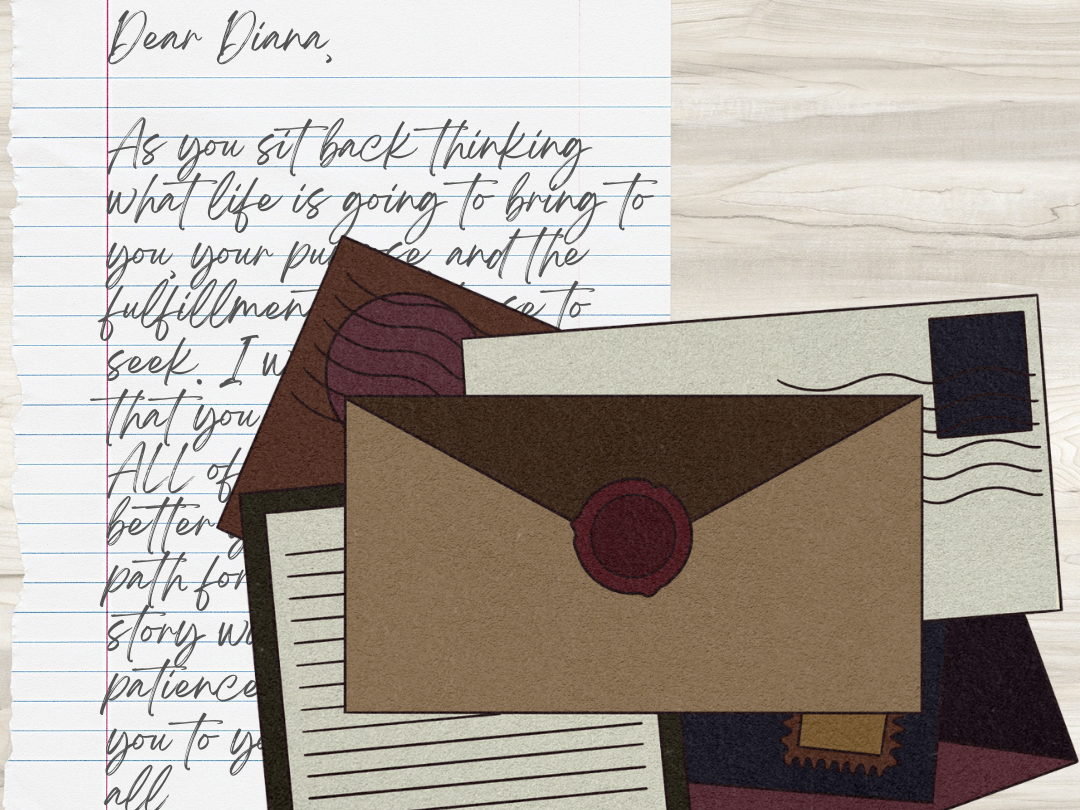 Dear Diana,
As you sit back thinking
what life is going to bring to
you, your and the
fulfillment to
seek. I
that you
ALL of
better
path for
story
patience
you to
all